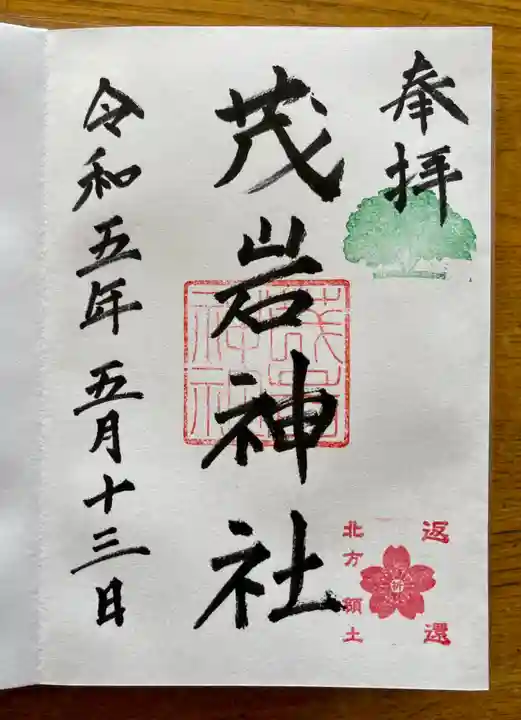 奉拝
茂岩神社
茂岩神社
令和五年五月十三日
祈
返還
北方領土